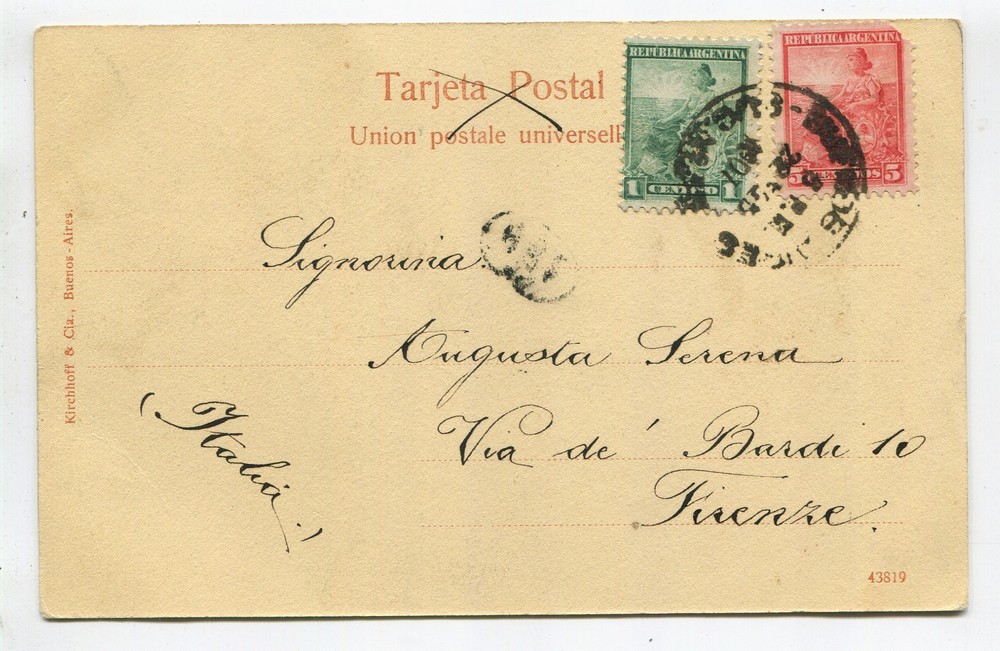 Tarjeta Postal
Union postale universell
REPUBLICA ARGENTINA
1 CENTAVO 1
REPUBLICA ARGENTINA
5 CENTAVOS 5
Signorina
Augusta Serena
Via de' Bardi 10
Firenze.
(Italia.)
Kirchhoff & Cia., Buenos-Aires.
43819